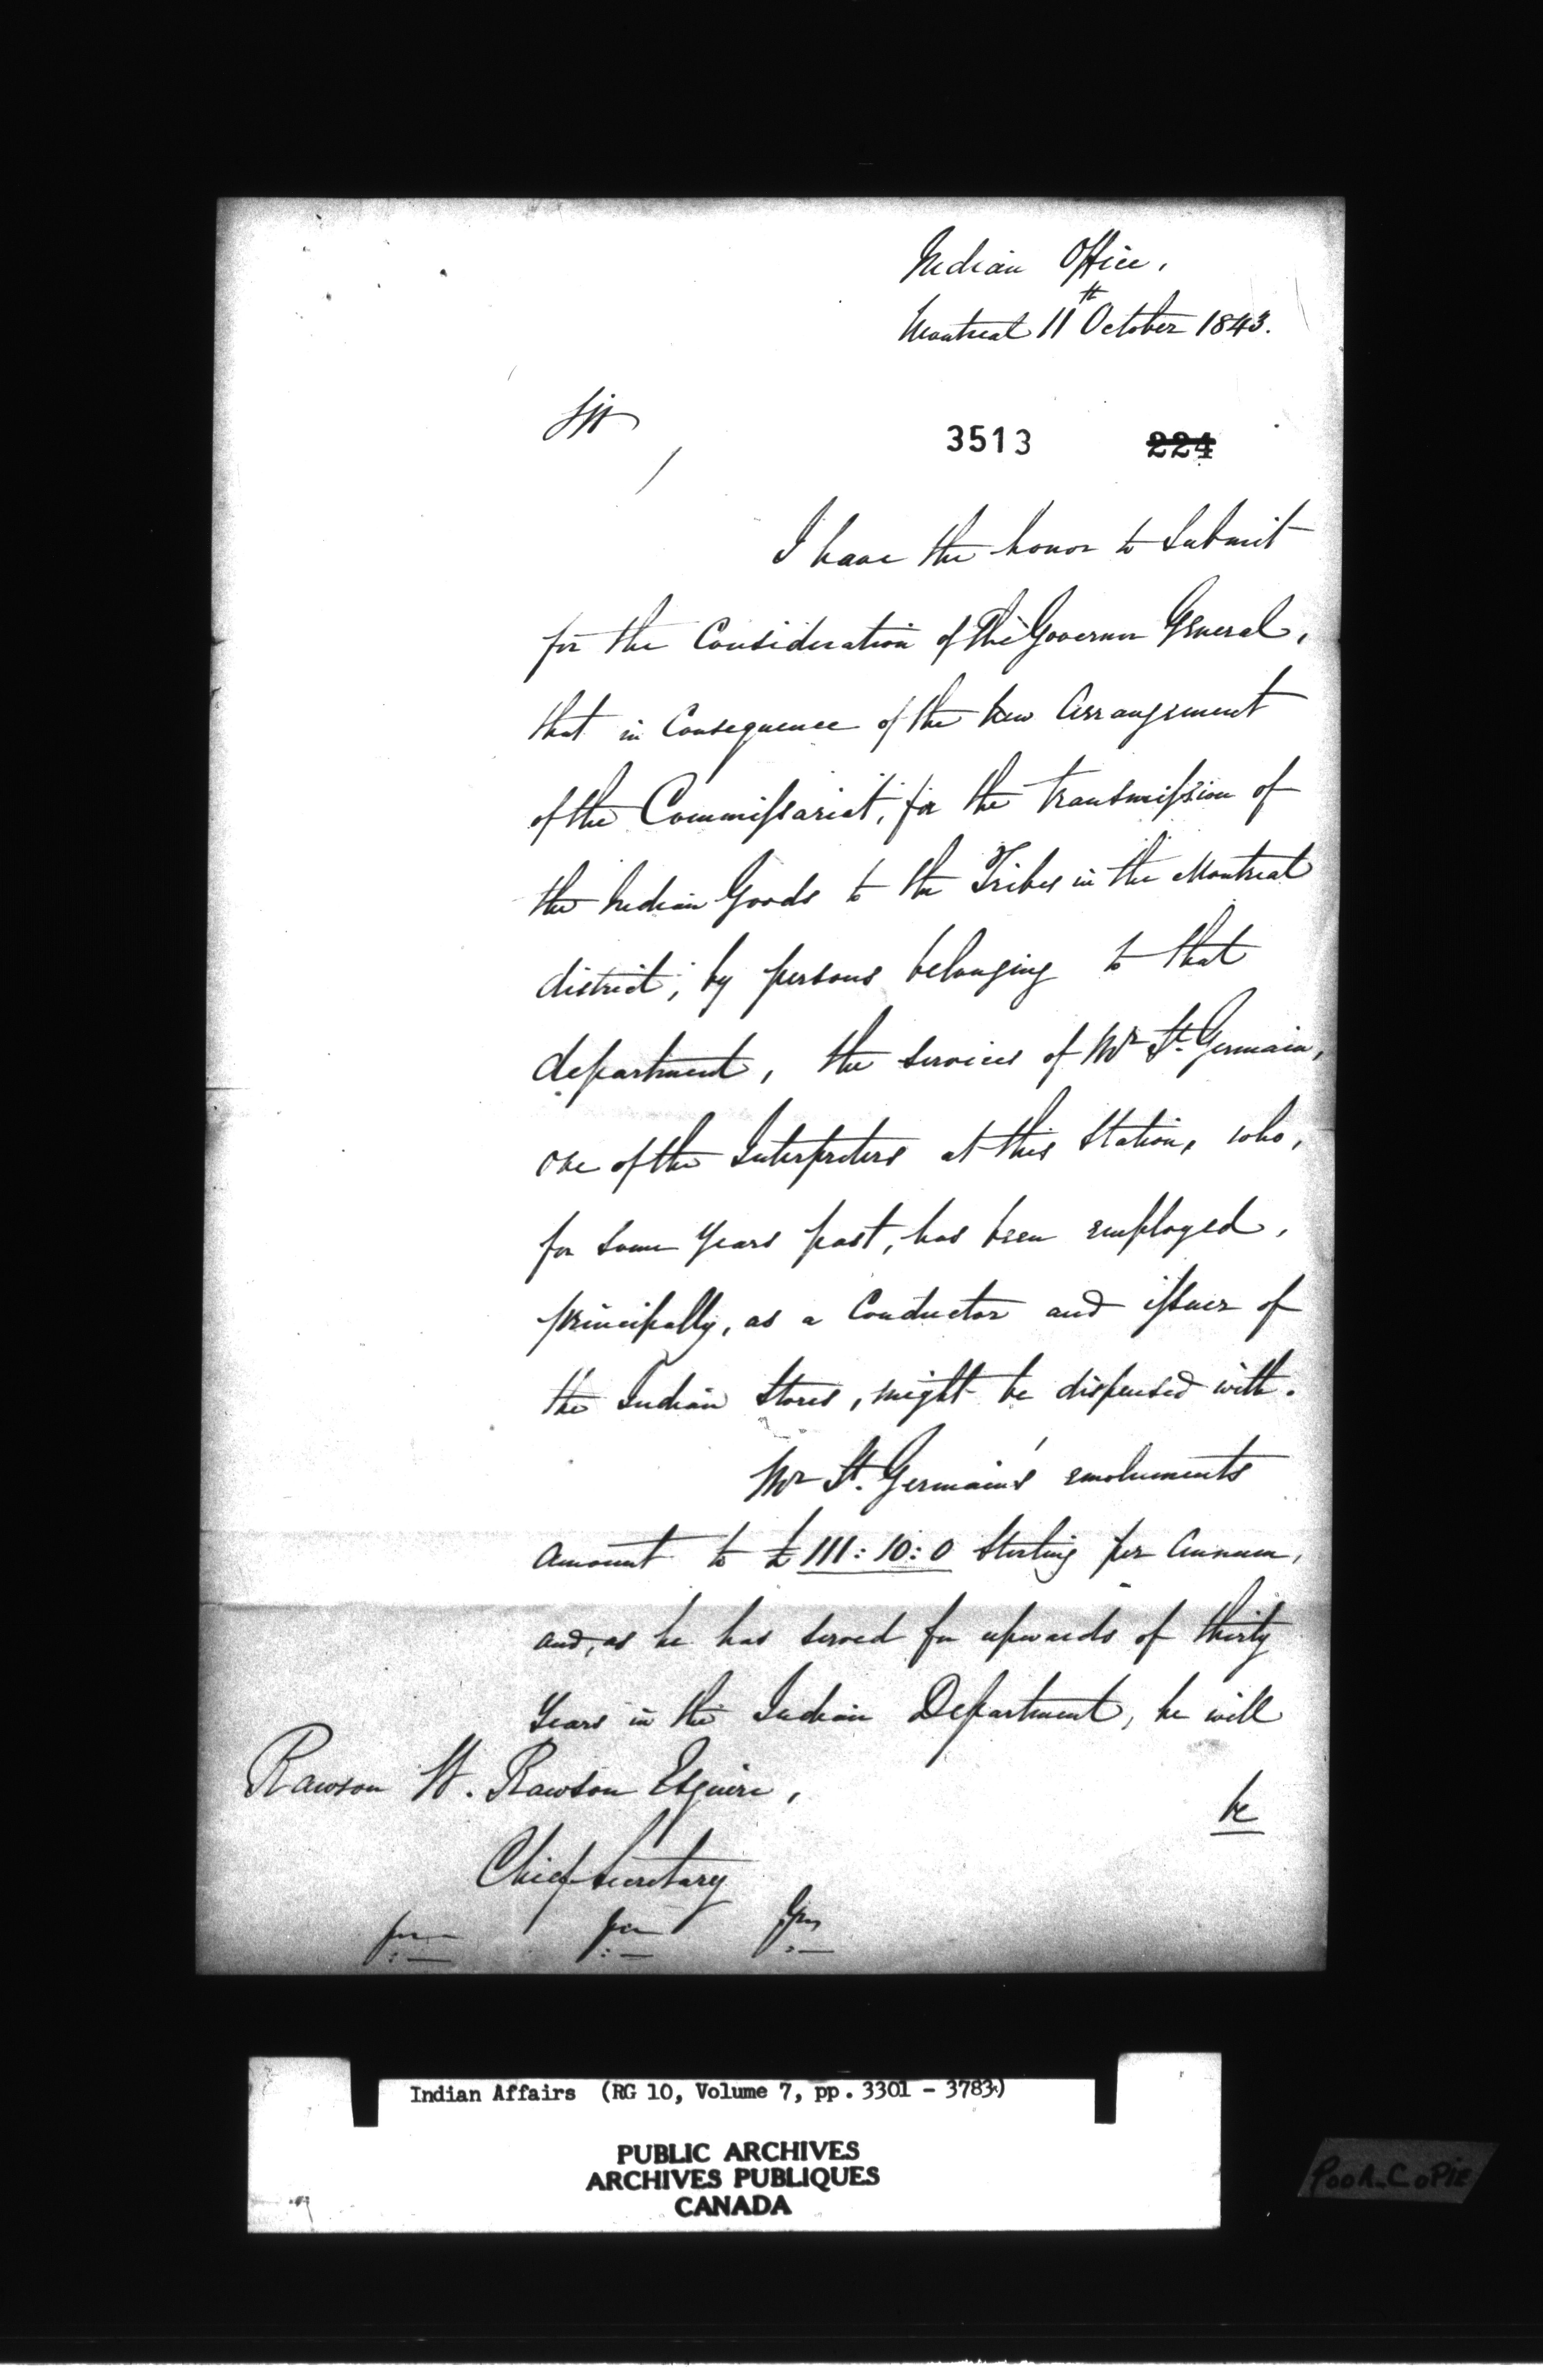 Indian Office,
Montreal 11th October 1843.
Sir
3513 224
I have the honor to Submit
for the Consideration of The Governor General,
that in Consequence of the New Arrangement
of the Commissariat, for the transmission of
the Indian Goods to the Tribes in the Montreal
district, by persons belonging to that
department, the services of Mr St. Germain,
one of the Interpreters at this Station, who,
for some years past, has been employed,
principally, as a Conductor and issuer of
the Indian Stores, might be dispensed with.
Mr St. Germain's emoluments
amount to £111:10:0 Sterling per Annum,
and, as he has served for upwards of thirty
Years in the Indian Department, he will
be
Rawson W. Rawson Esquire,
Chief Secretary
Indian Affairs (RG 10, Volume 7, pp. 3301 - 3783)
PUBLIC ARCHIVES
ARCHIVES PUBLIQUES
CANADA
POOR COPIE